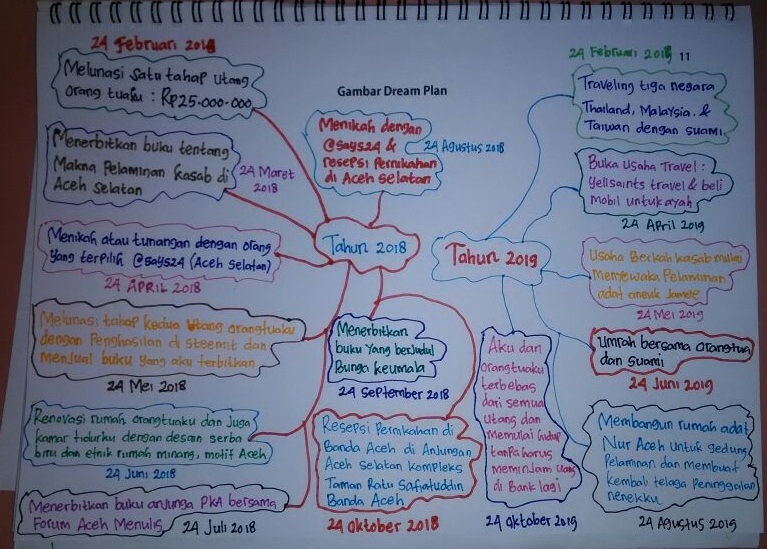 24 Februari 2018
Melunasi satu tahap utang
orang tuaku : Rp25.000.000
Menerbitkan buku tentang
Makna Pelaminan kasab di
Aceh Selatan
24 Maret
2018
Menikah atau tunangan dengan orang
yang terpilih @says24 (Aceh Selatan)
24 APRIL 2018
Melunasi tahap kedua utang orangtuaku
dengan Penghasilan di steemit dan
menjual buku yang aku terbitkan
24 Mei 2018
Renovasi rumah orangtuaku dan Juga
kamar tidurku dengan desain serba
biru dan etnik rumah minang, motif Aceh
24 Juni 2018
Menerbitkan buku anjungan PKA bersama
Forum Aceh Menulis
24 Juli 2018
Gambar Dream Plan
Menikah dengan
@says24 &
resepsi Pernikahan
di Aceh Selatan
24 Agustus 2018
Tahun 2018
Menerbitkan
buku yang berjudul
Bungo keumala
24 September 2018
Resepsi Pernikahan di
Banda Aceh di Anjungan
Aceh Selatan Kompleks
Taman Ratu Safiatuddin
Banda Aceh
24 Oktober 2018
Tahun 2019
24 Februari 2019 11
Traveling tiga negara
Thailand, Malaysia. &
Taiwan dengan suami
Buka Usaha Travel :
Yellsaints travel & beli
mobil untuk ayah
24 April 2019
Usaha Berkah kasab mulai
menyewaka Pelaminan
adat aneuk Jamee
24 Mei 2019
Umrah bersama orangtua
dan suami
24 Juni 2019
Membangun rumah adat
Nur Aceh untuk gedung
Pelaminan dan membuat
kembali telaga Peninggalan
nenekku
24 Agustus 2019
Aku dan
orangtuaku
terbebas
dari semua
utang dan
Memulai hidup
tanpa harus
meminjam uang
di Bank lagi
24 Oktober 2019